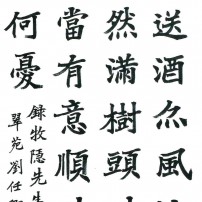 送酒亦風
然滿樹頭
當有意順
何憂
錄牧隱先生
翠苑劉任